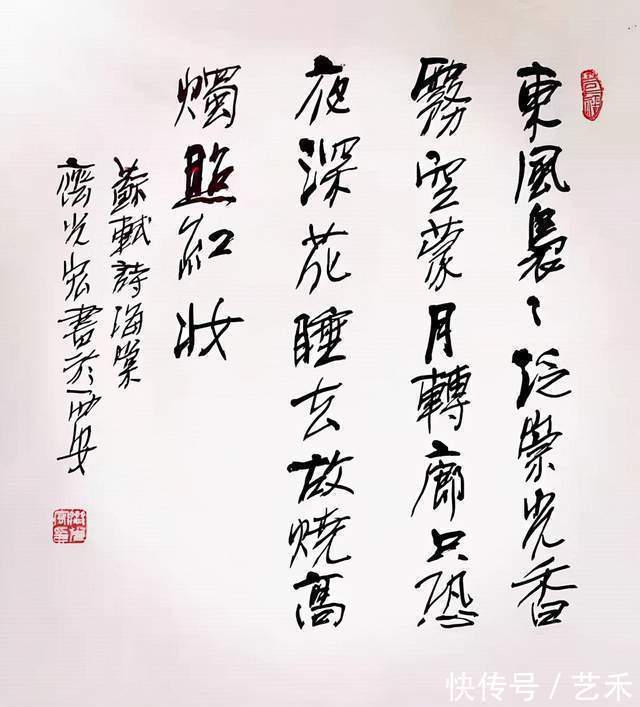 東風裊〻泛崇光香
霧空蒙月轉廊只恐
夜深花睡去故燒高
燭照紅妝
蘇軾詩海棠
齊光宏書於西安
快传号／艺禾